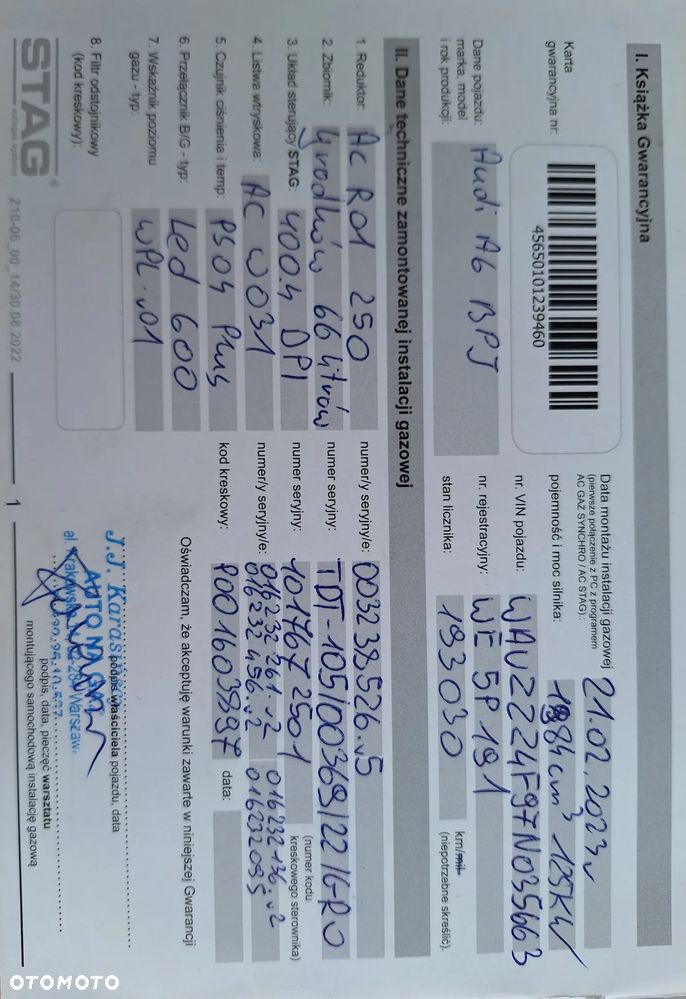 I. Książka Gwarancyjna
Karta
gwarancyjna nr:
45650101239460
Data montażu instalacji gazowej
(pierwsze połączenie z PC z programem
AC GAZ SYNCHRO / AC STAG):
21.02.2023r
pojemność i moc silnika:
1984cm3 125KW
Dane pojazdu:
marka, model
i rok produkcji:
Audi A6 BPJ
nr. VIN pojazdu:
WAUZZZ4F97N035663
nr. rejestracyjny:
WE 5P191
stan licznika:
193030
km/mil.
(niepotrzebne skreślić).
II. Dane techniczne zamontowanej instalacji gazowej
1. Reduktor: AC R01 250
numer/y seryjny/e: 003239526.v5
2. Zbiornik: Grodków 66 litrów
numer seryjny: TDT-105/00369/22 16-RO
3. Układ sterujący STAG: 400.4 DPI
numer seryjny: 101767 2501
(numer kodu
kreskowego sterownika)
4. Listwa wtryskowa: AC W031
numer/y seryjny/e: 016232261.v2 016232136.v2
016232456.v2
5. Czujnik ciśnienia i temp: PS04 Plus
kod kreskowy: 9001603997
data:
6. Przełącznik B/G - typ: Led 600
7. Wskaźnik poziomu
gazu - typ: WPL.v01
8. Filtr odstojnikowy
(kod kreskowy):
Oświadczam, że akceptuję warunki zawarte w niniejszej Gwarancji
podpis właściciela pojazdu, data
J.J. Karaś
AUTO NA GAZ
al. Krakowska
Warszawa
podpis, data, pieczęć warsztatu
montującego samochodową instalację gazową
STAG®
autogas systems
Z10-06_00_14/30.08.2022
1
OTOMOTO